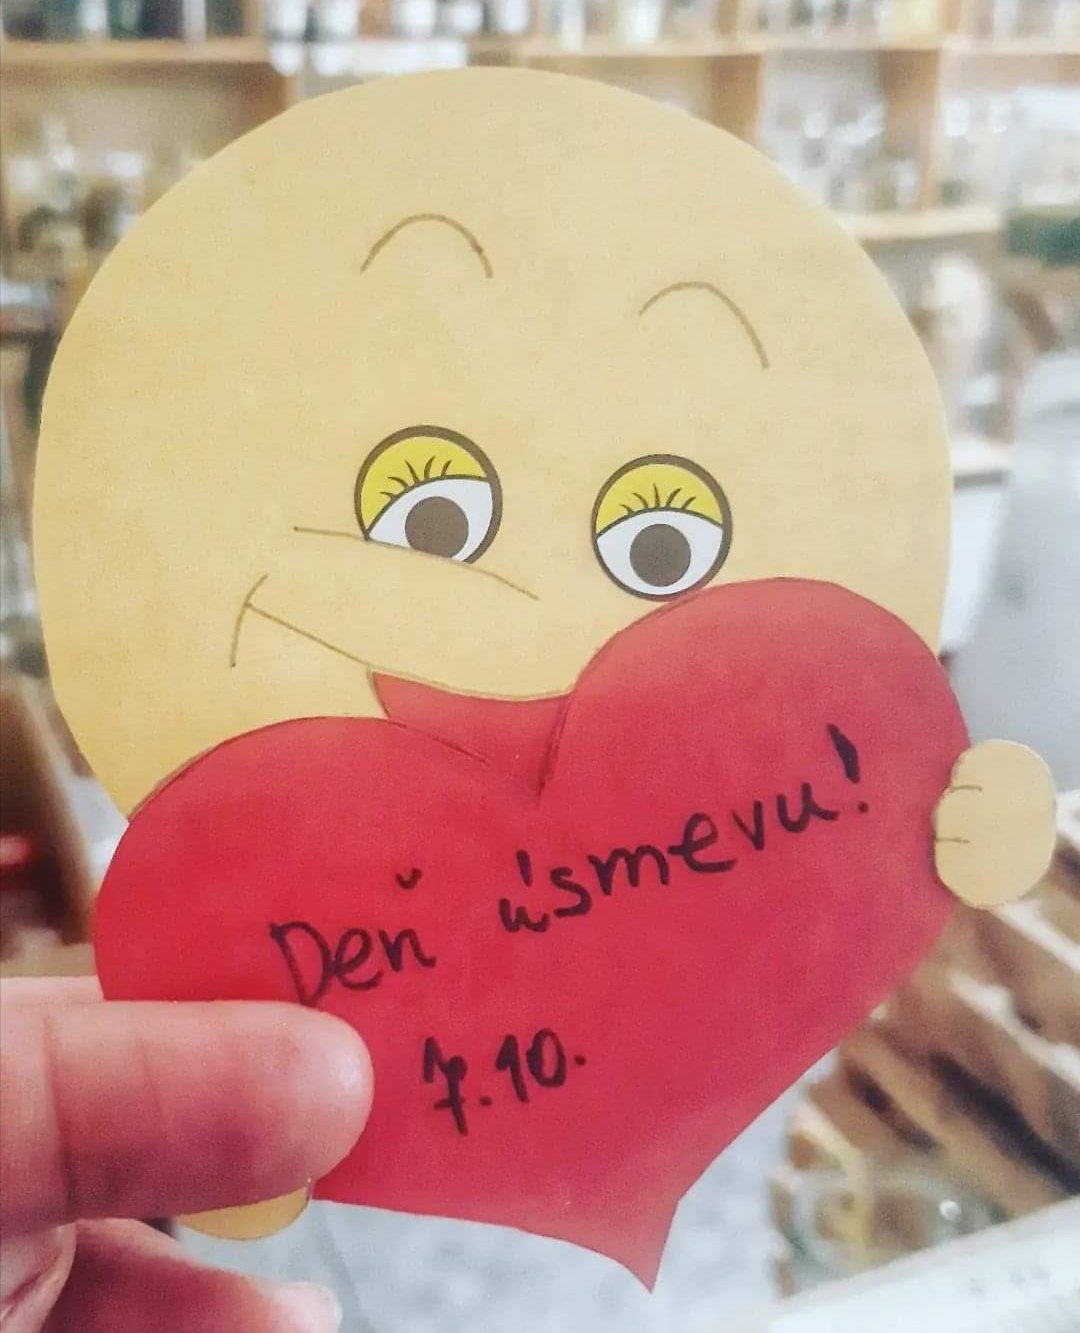 Deň úsmevu!
7.10.